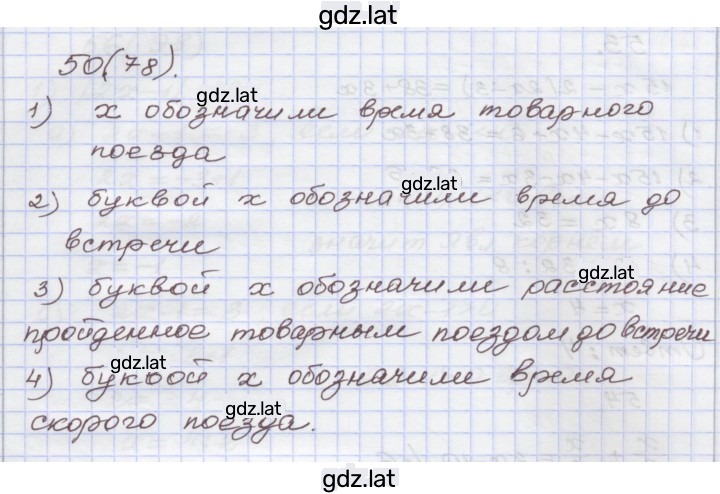 gdz.lat
50(78).
gdz.lat
1) х обозначили время товарного
поезда
gdz.lat
2) буквой х обозначили время до
встречи
gdz.lat
3) буквой х обозначили расстояние
пройденное товарным поездом до встречи
gdz.lat
4) буквой х обозначили время
gdz.lat
скорого поезда.
gdz.lat